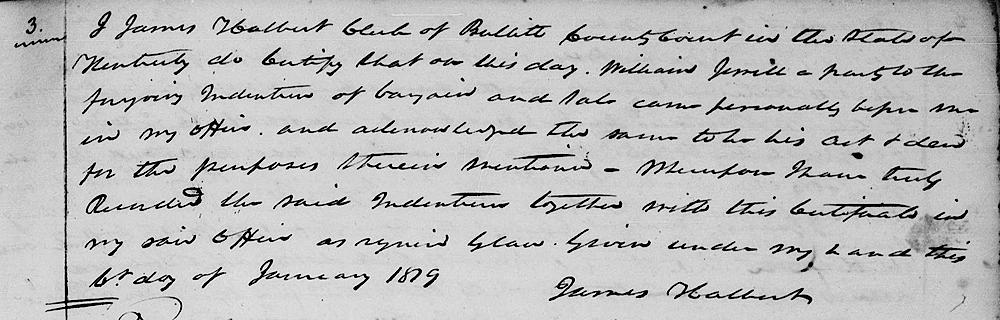 3. I James Halbert Clerk of Bullitt County Court in the State of
Kentucky do Certify that on this day. William a party to the
foregoing Indenture of bargain and Sale came personally before me
in my office. and acknowledged the same to be his act & deed
for the purposes therein mentioned - Whereupon I have truly
Recorded the said Indenture together with this Certificate in
my said office as Given under my hand this
6th day of January 1819
James Halbert